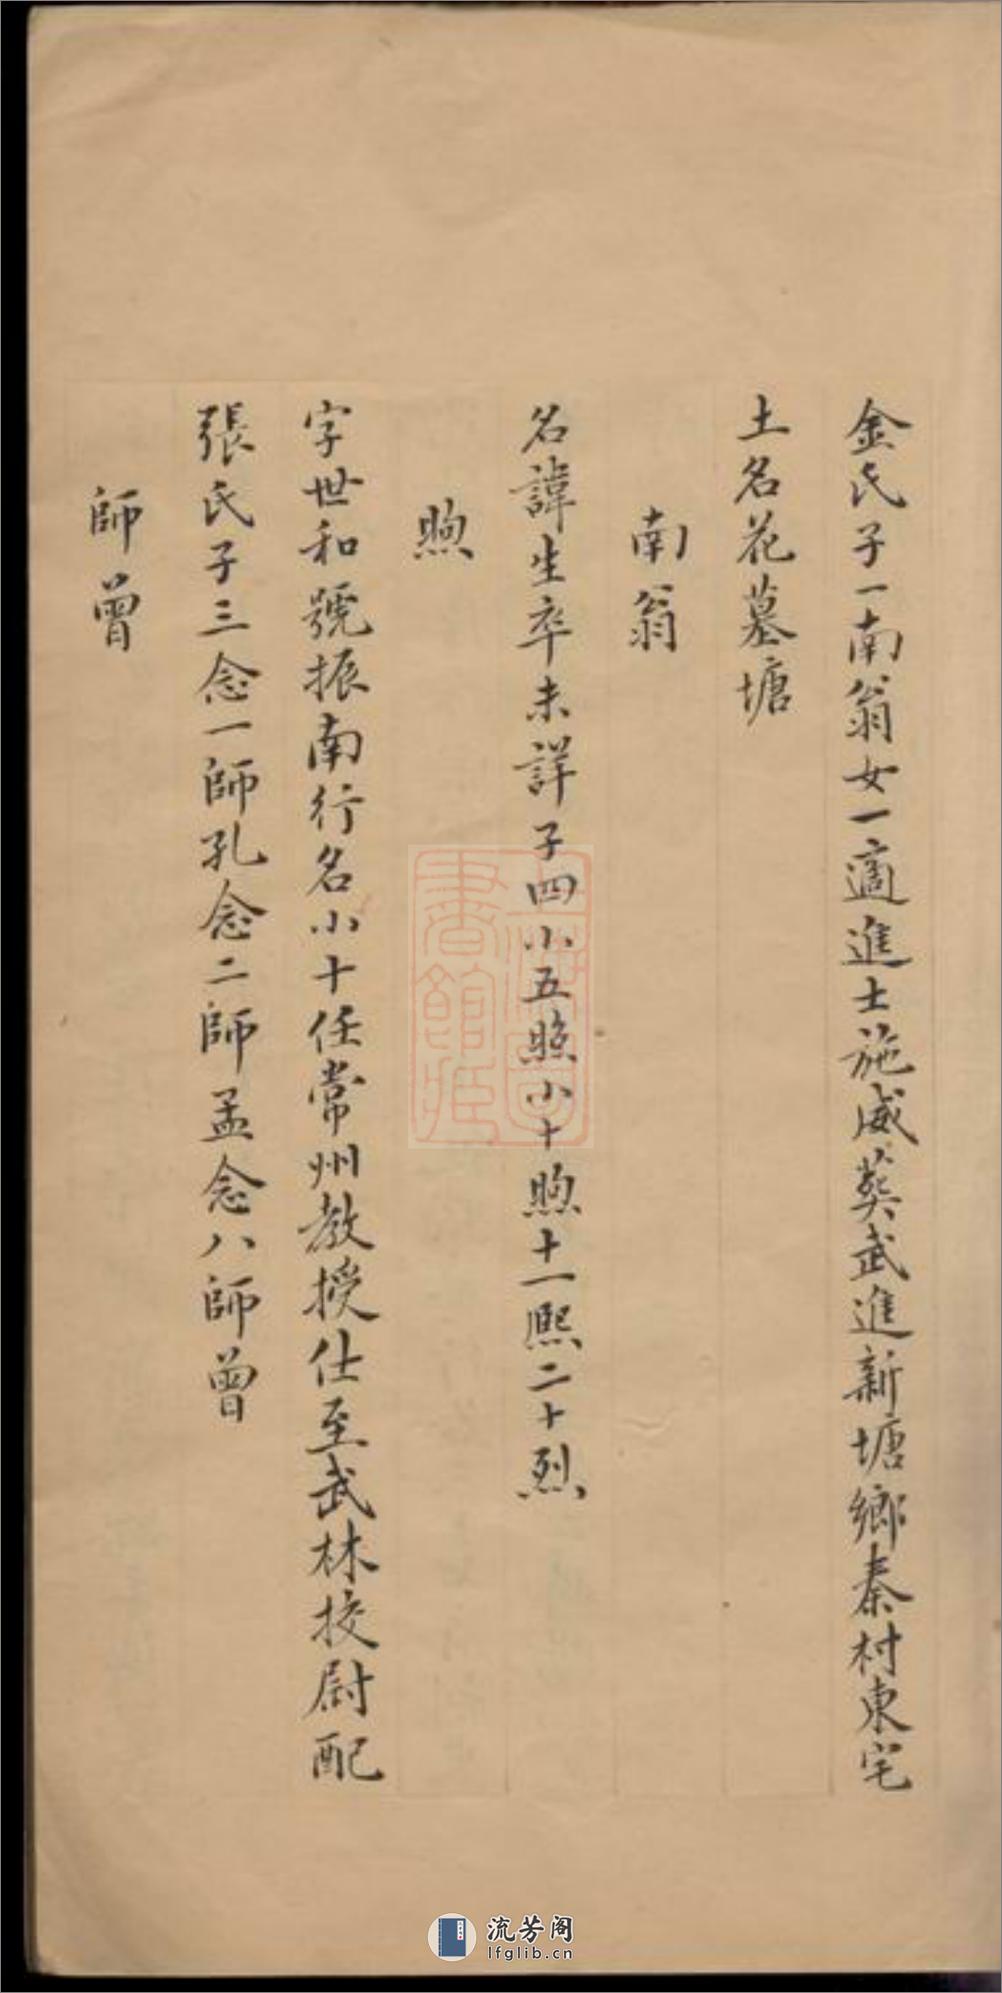 金氏子一南翁女一適進士施威葵武進新塘鄉秦村東宅
土名花墓塘
南翁
名諱生卒未詳子四小五照小十煦十一熈二十烈
煦
字世和號振南行名小十任常州教授仕至武林校尉配
張氏子三念一師孔念二師孟念八師曾
師曾
上海圖書館藏
流芳阁
lfglib.cn